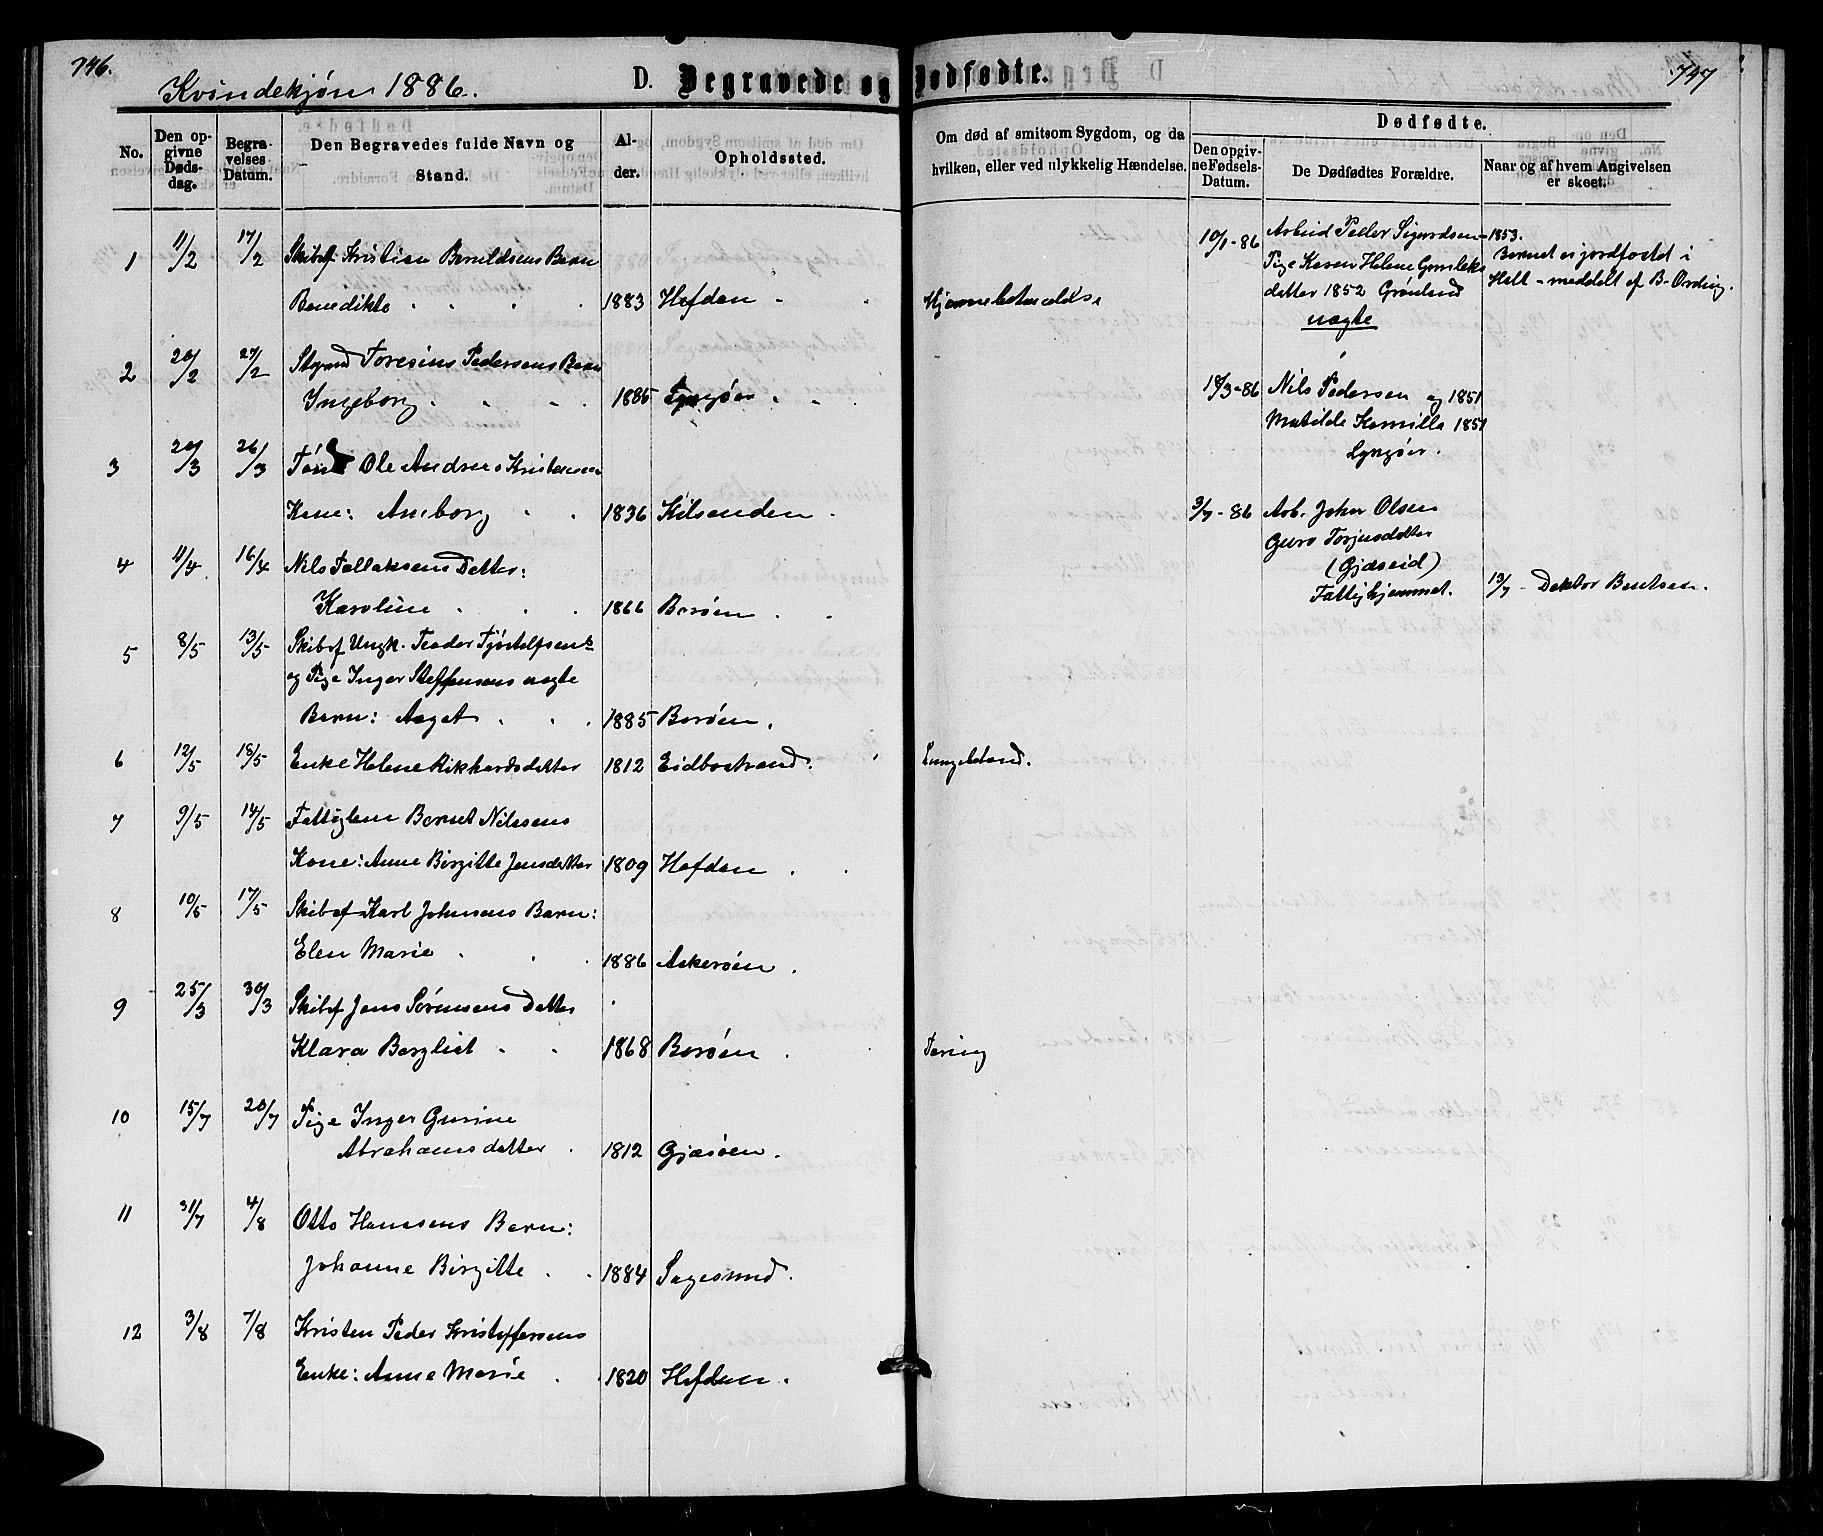 746.
Kvindekjøn 1886.
D. Begravede og Dødfødte.
747
No.
Den opgivne Dødsdag.
Begravelses Datum.
Den Begravedes fulde Navn og Stand.
Alder.
Opholdssted.
Om død af smitsom Sygdom, og da hvilken, eller ved ulykkelig Hændelse.
Dødfødte.
Den opgivne Fødsels-Datum.
De Dødfødtes Forældre.
Naar og af hvem Angivelsen er skeet.
1 11/2 17/2 Skibsf: Kristian Beruldsens Barn
Benedikte 1883 Hefden
2 20/2 27/2 Styrmd Toresius Pedersens Barn
Ingeborg 1885 Lyngør
3 20/3 26/3 Ole Andreas Kristensens
Kone: Anborg 1836 Kilsenden
4 11/4 16/4 Nils Tellaksens Datter:
Karoline 1866 Borøen
5 8/5 13/5 Skibsf Ungk. Teodor Tjøstelfsens
og Pige Inger Steffensens uægte
Barn: Aaget 1885 Borøen
6 12/5 18/5 Enke Helene Rikhardsdatter 1812 Eidbostrand.
7 9/5 14/5 Fattiglem Bernt Nilssens
Kone: Anne Birgitte Jensdatter 1809 Hefden
8 10/5 17/5 Skibsf Karl Johnsens Barn:
Elen Marie 1886 Askerøen
9 25/3 30/3 Skibsf Jens Sørensens Datter
Klara Bergliot 1868 Borøen Tæring
10 15/7 20/7 Pige Inger Gurine
Abrahamsdatter 1812 Gjæsøen.
11 31/7 4/8 Otto Hansens Barn:
Johanne Birgitte 1884 Sagesund.
12 3/8 7/8 Kristen Peder Kristoffersens
Enke: Anne Marie 1820 Hefden.
10/1-86 Arbeid Peder Sigurdsen 1853.
Pige Karen Helene Gunleks
datter 1852 Grønland
uægte
Barnet er jordfæstet i
Holt - meddelt af B. Ording.
18/3-86 Nils Pedersen og 1851
Matilde Kamilla 1851
Lyngør.
3/7-86 Arb. John Olsen
Guro Torjusdatter
(Gjæseid)
Fattighjemmet.
13/7 - Doktor Bentsen.